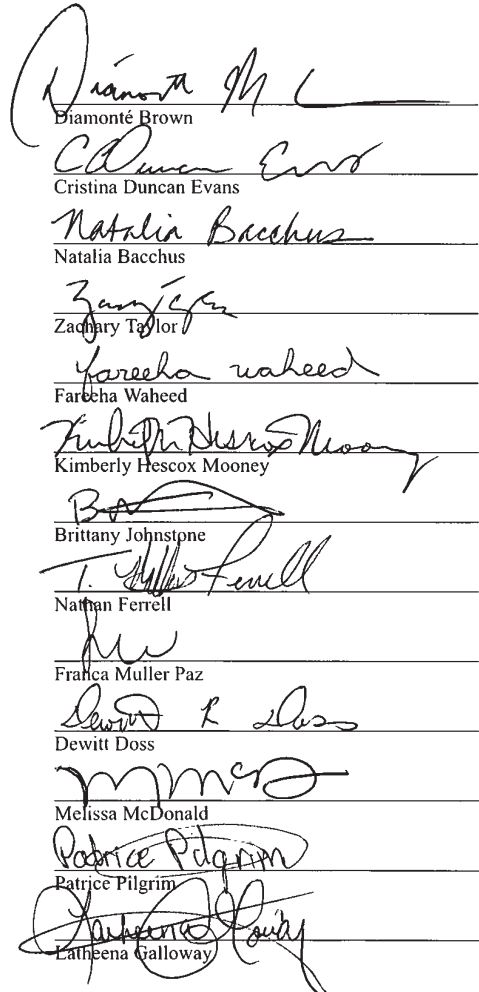 Diamonté Brown
Cristina Duncan Evans
Natalia Bacchus
Natalia Bacchus
Zachary Taylor
fareeha waheed
Fareeha Waheed
Kimberly Hescox Mooney
Kimberly Hescox Mooney
Brittany Johnstone
T. Ferrell
Nathan Ferrell
Franca Muller Paz
Dewitt R Doss
Dewitt Doss
Melissa McDonald
Patrice Pilgrim
Patrice Pilgrim
Latheena Galloway